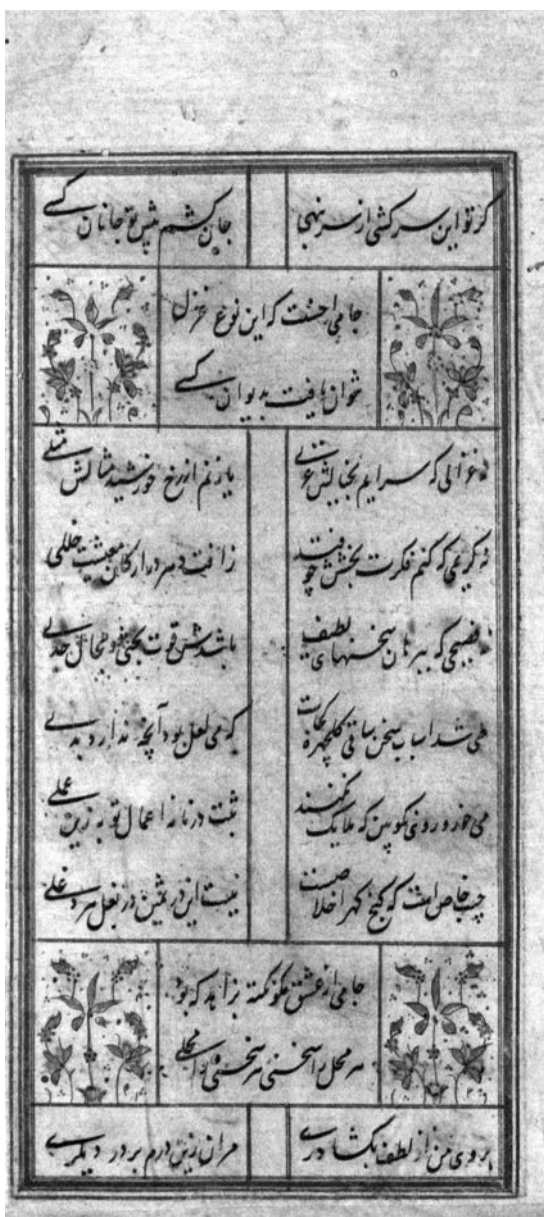 گر تو این سرکشی از سر ننهی
جان کشم پیش تو جانان کسی
جامی احسنت که این نوع غزل
نتوان یافت بدیوان کسی
نه غزالی که سرایم بخیالش غزلی
یا زنم از رخ خورشید مثالش مثلی
نه کریمی که کنم فکرت بخشش چو فتد
ز آفت دهر در ارکان معیشت خللی
نه فصیحی که ببرهان سخنهای لطیف
باشدش قوت بحثی و مجال جدلی
طی شد اسباب سخن ساقی گلچهره کجاست
که می لعل بود آنچه ندارد بدلی
می خور و روی نکو بین که ملایک نکنند
ثبت در نامه اعمال تو به زین عملی
جیب خاص است که گنج گهر اخلاصست
نیست این در ثمین در بغل هر دغلی
جامی از عشق مگو نکته بزاهد که بود
هر محل را سخنی هر سخنی را محلی
بروی من از لطف بگشا دری
مران زین درم بر در دیگری